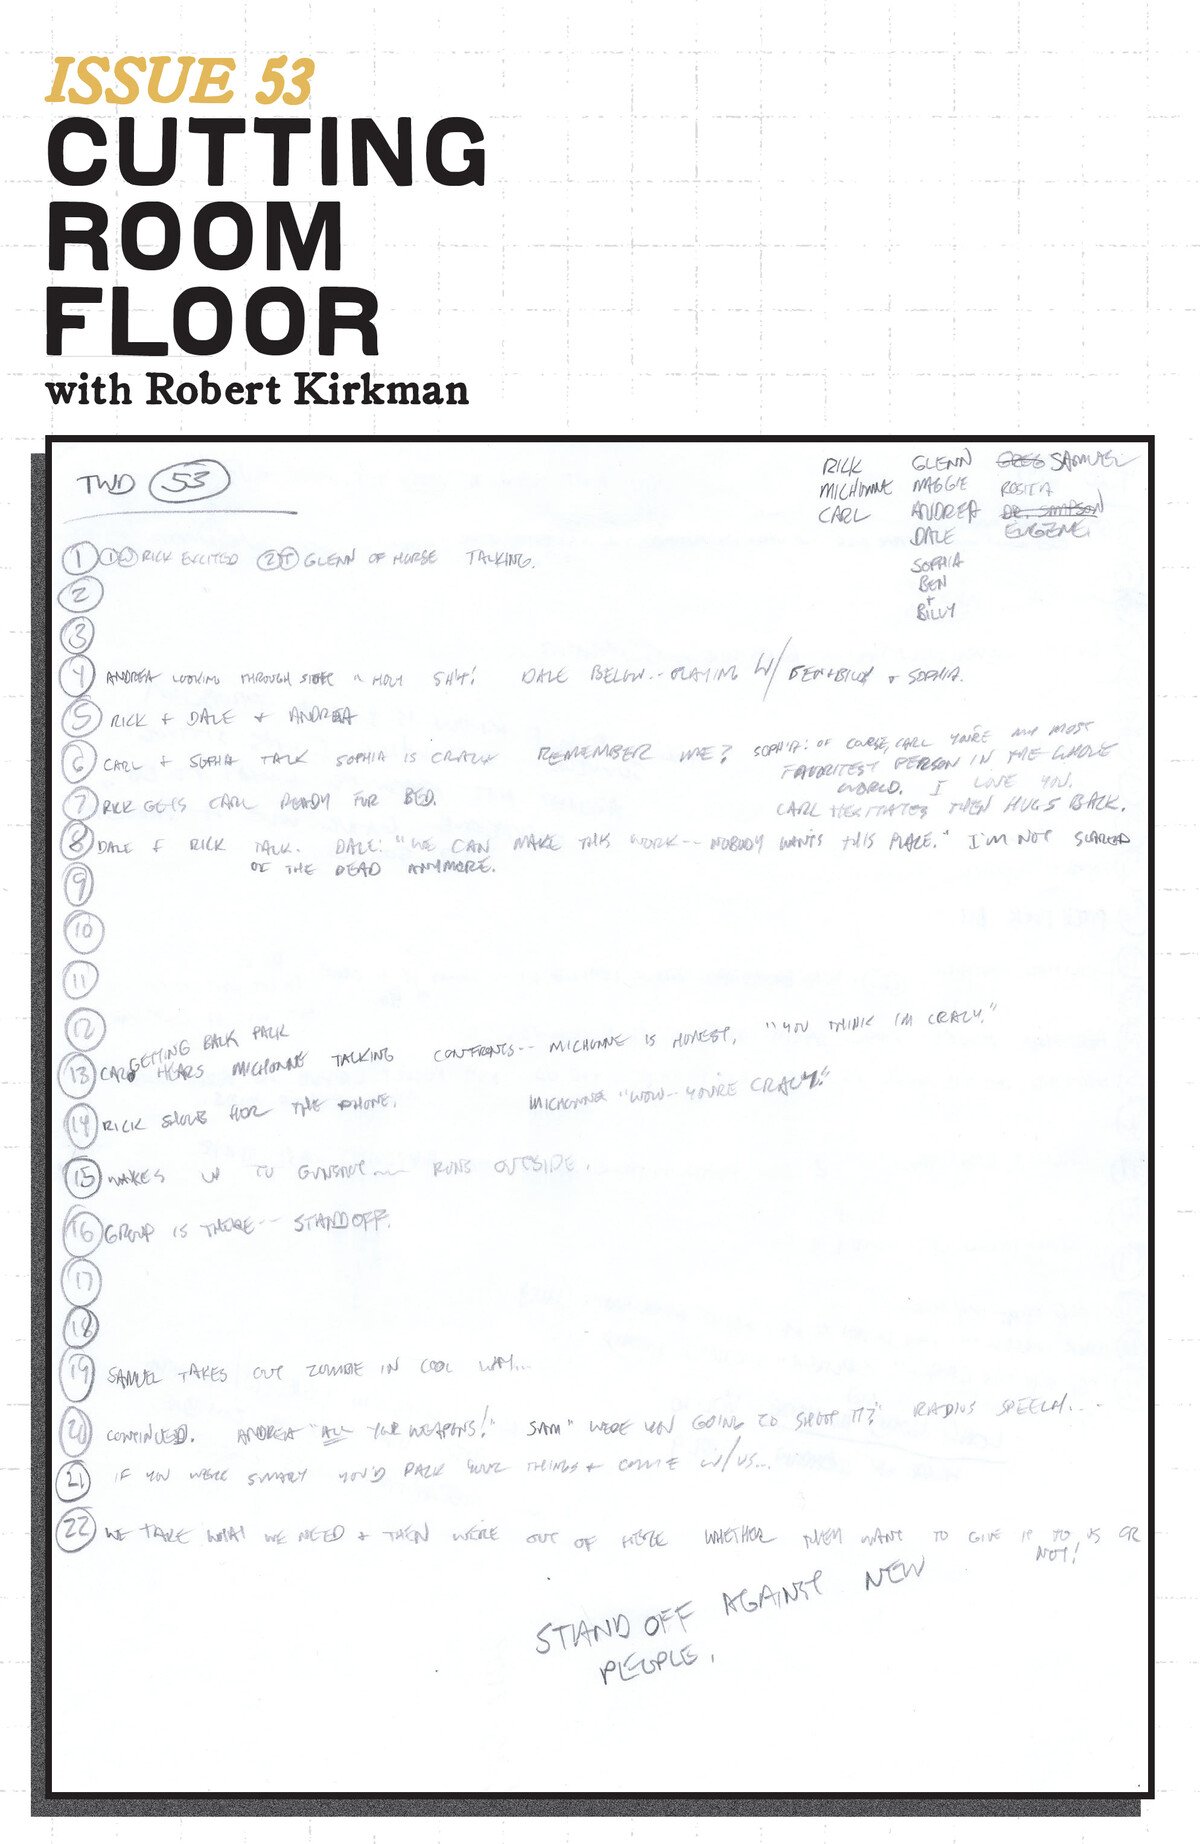 ISSUE 53
CUTTING
ROOM
FLOOR
with Robert Kirkman
TWD 53
RICK GLENN GREG SAMUEL
MICHONNE MAGGIE ROSITA
CARL ANDREA DR. SIMPSON
DALE EUGENE.
SOPHIA
BEN
+
BILLY
1 1W RICK EXCITED 2T GLENN OF HORSE TALKING.
2
3
4 ANDREA LOOKING THROUGH HOLY SHIT! DALE BELOW-- PLAYING W/ BEN+BILLY + SOPHIA.
5 RICK + DALE + ANDREA
6 CARL + SOPHIA TALK SOPHIA IS CRAZY REMEMBER ME? SOPHIA: OF COURSE, CARL YOU'RE MY MOST
FAVORITEST PERSON IN THE WHOLE
WORLD. I LOVE YOU.
7 RICK GETS CARL READY FOR BED. CARL HESITATES THEN HUGS BACK.
8 DALE & RICK TALK. DALE: "WE CAN MAKE THIS WORK-- NOBODY WANTS THIS PLACE." I'M NOT SCARED
OF THE DEAD ANYMORE.
9
10
11
12
GETTING BACK PACK
13 CARL HEARS MICHONNE TALKING CONFRONTS-- MICHONNE IS HONEST, "YOU THINK IM CRAZY."
14 RICK SHOWS HER THE PHONE. MICHONNE "WOW-- YOU'RE CRAZY."
15 WAKES UP TO GUNSHOT RUNS OUTSIDE.
16 GROUP IS THERE-- STANDOFF.
17
18
19 SAMUEL TAKES OUT ZOMBIE IN COOL WAY...
20 CONTINUED. ANDREA "ALL YOUR WEAPONS!" SAM "WERE YOU GOING TO SHOOT IT?" RADIUS SPEECH...
21 IF YOU WERE SMART YOU'D PACK YOUR THINGS + COME W/US...
22 WE TAKE WHAT WE NEED + THEN WE'RE OUT OF HERE WHETHER THEY WANT TO GIVE IT TO US OR
NOT!
STAND OFF AGAINST NEW
PEOPLE.